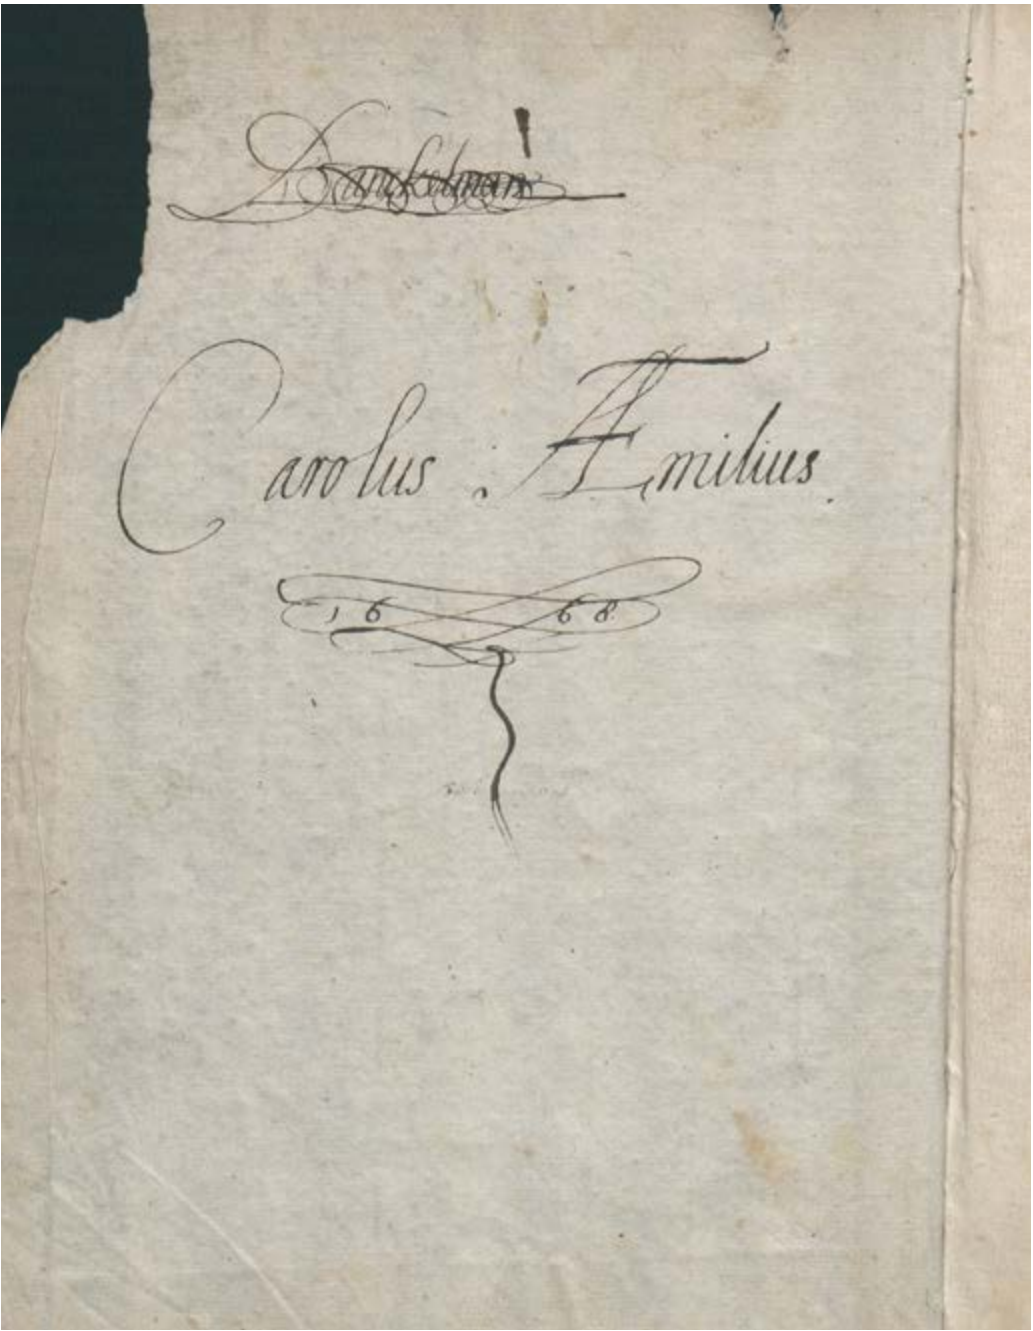 Carolus . Æmilius.
16 68.